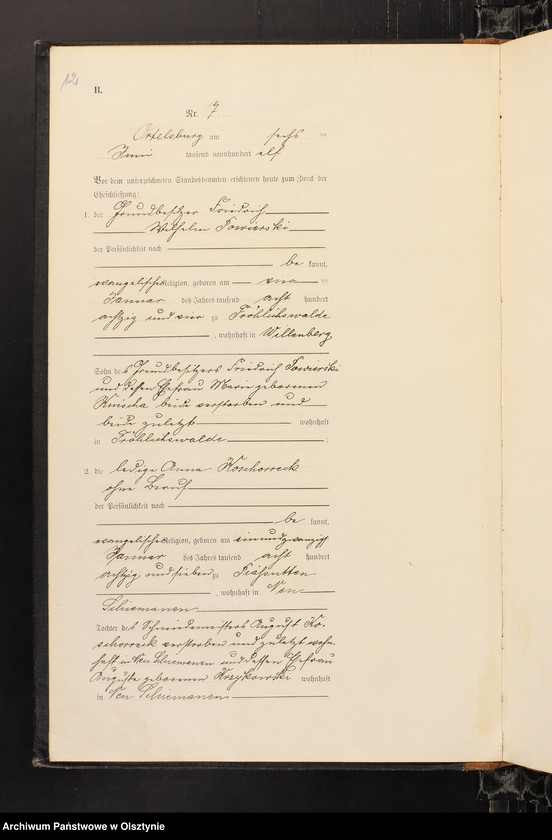 12
B.
Nr. 7
Ortelsburg am sechs ten
Juni tausend neunhundert elf
Vor dem unterzeichneten Standesbeamten erschienen heute zum Zweck der
Eheschließung:
1. der Grundbesitzer Friedrich
Wilhelm
der Persönlichkeit nach
be kannt,
evangelischer Religion, geboren am vier ten
Januar des Jahres tausend acht hundert
achtzig und vier zu Fröhlichswalde
, wohnhaft in Willenberg
Sohn des Grundbesitzers Friedrich
und dessen Ehefrau Marie geborenen
beide verstorben und
beide zuletzt wohnhaft
in Fröhlichswalde ;
2. die ledige Anna Koschorreck
ohne Beruf
der Persönlichkeit nach
be kannt,
evangelischer Religion, geboren am einundzwanzigst
Januar des Jahres tausend acht hundert
achtzig und sieben zu
, wohnhaft in Neu
Schiemanen
Tochter des Schmiedemeisters August Ko-
schorreck verstorben und zuletzt wohn-
haft in Neu Schiemanen und dessen Ehefrau
Auguste geborenen Krzykowski wohnhaft
in Neu Schiemanen
Archiwum Państwowe w Olsztynie